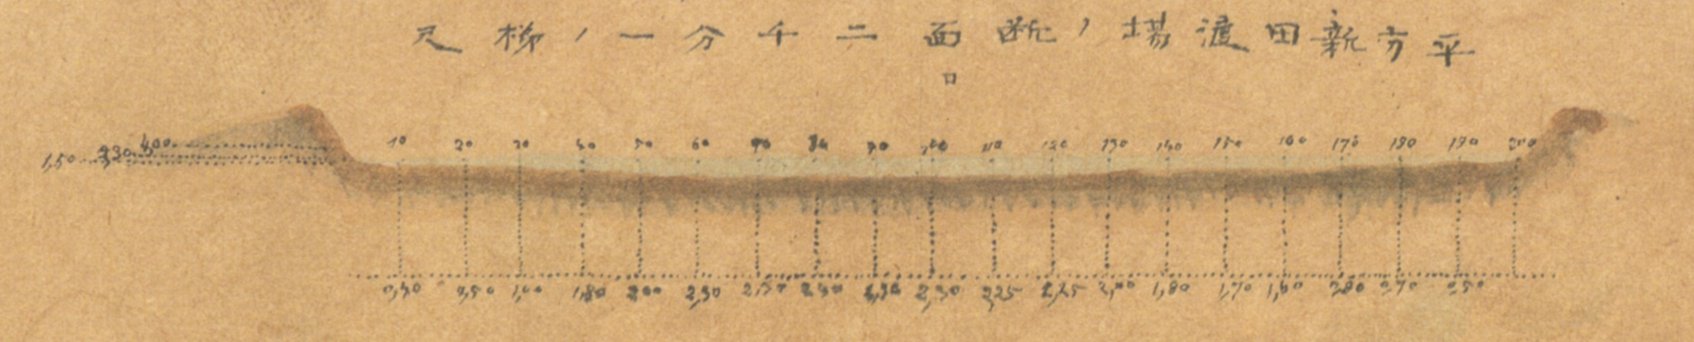 平方新田渡場ノ断面二千分一ノ梯尺
口
10 20 30 40 50 60 70 80 90 100 110 120 130 140 150 160 170 180 190 200
1,50
0,50 1,00 1,80 2,00 2,30 2,30 2,25 2,25 2,00 1,80 1,70 1,60 0,70 0,50